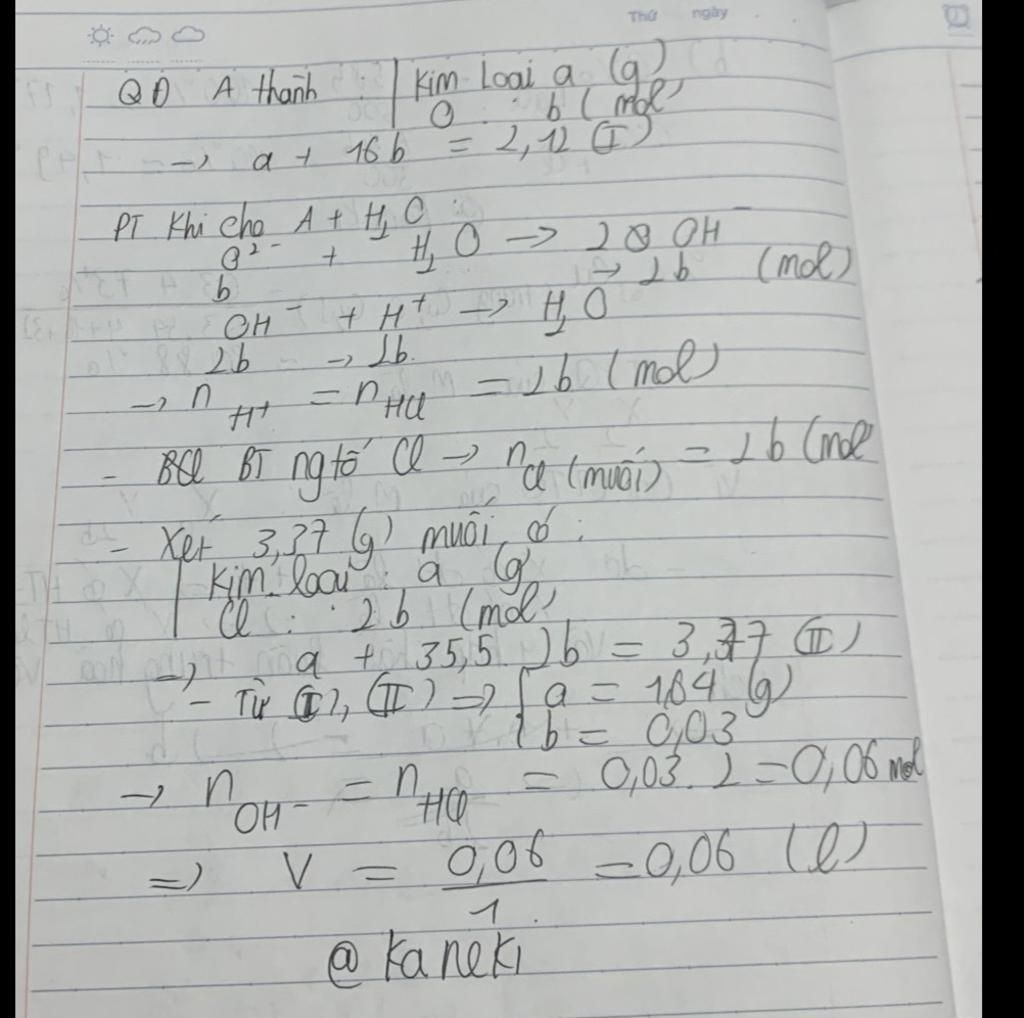 Thứ ngày
QĐ A thành : Kim loại a (g)
O : b (mol)
→ a + 16b = 2,12 (I)
PT khi cho A + H₂O :
O²⁻ + H₂O → 2 OH⁻
b → 2b (mol)
OH⁻ + H⁺ → H₂O
2b → 2b.
→ n H⁺ = n HCl = 2b (mol)
- BT ngtố Cl → n Cl (muối) = 2b (mol
- Xét 3,77 (g) muối có :
Kim loại : a (g)
Cl : 2b (mol)
→ a + 35,5. 2b = 3,77 (II)
- Từ (I), (II) ⇒ a = 1,64 (g)
b = 0,03
→ n OH⁻ = n HCl = 0,03. 2 = 0,06 mol
⇒ V = 0,06 / 1 = 0,06 (l)
@ kaneki